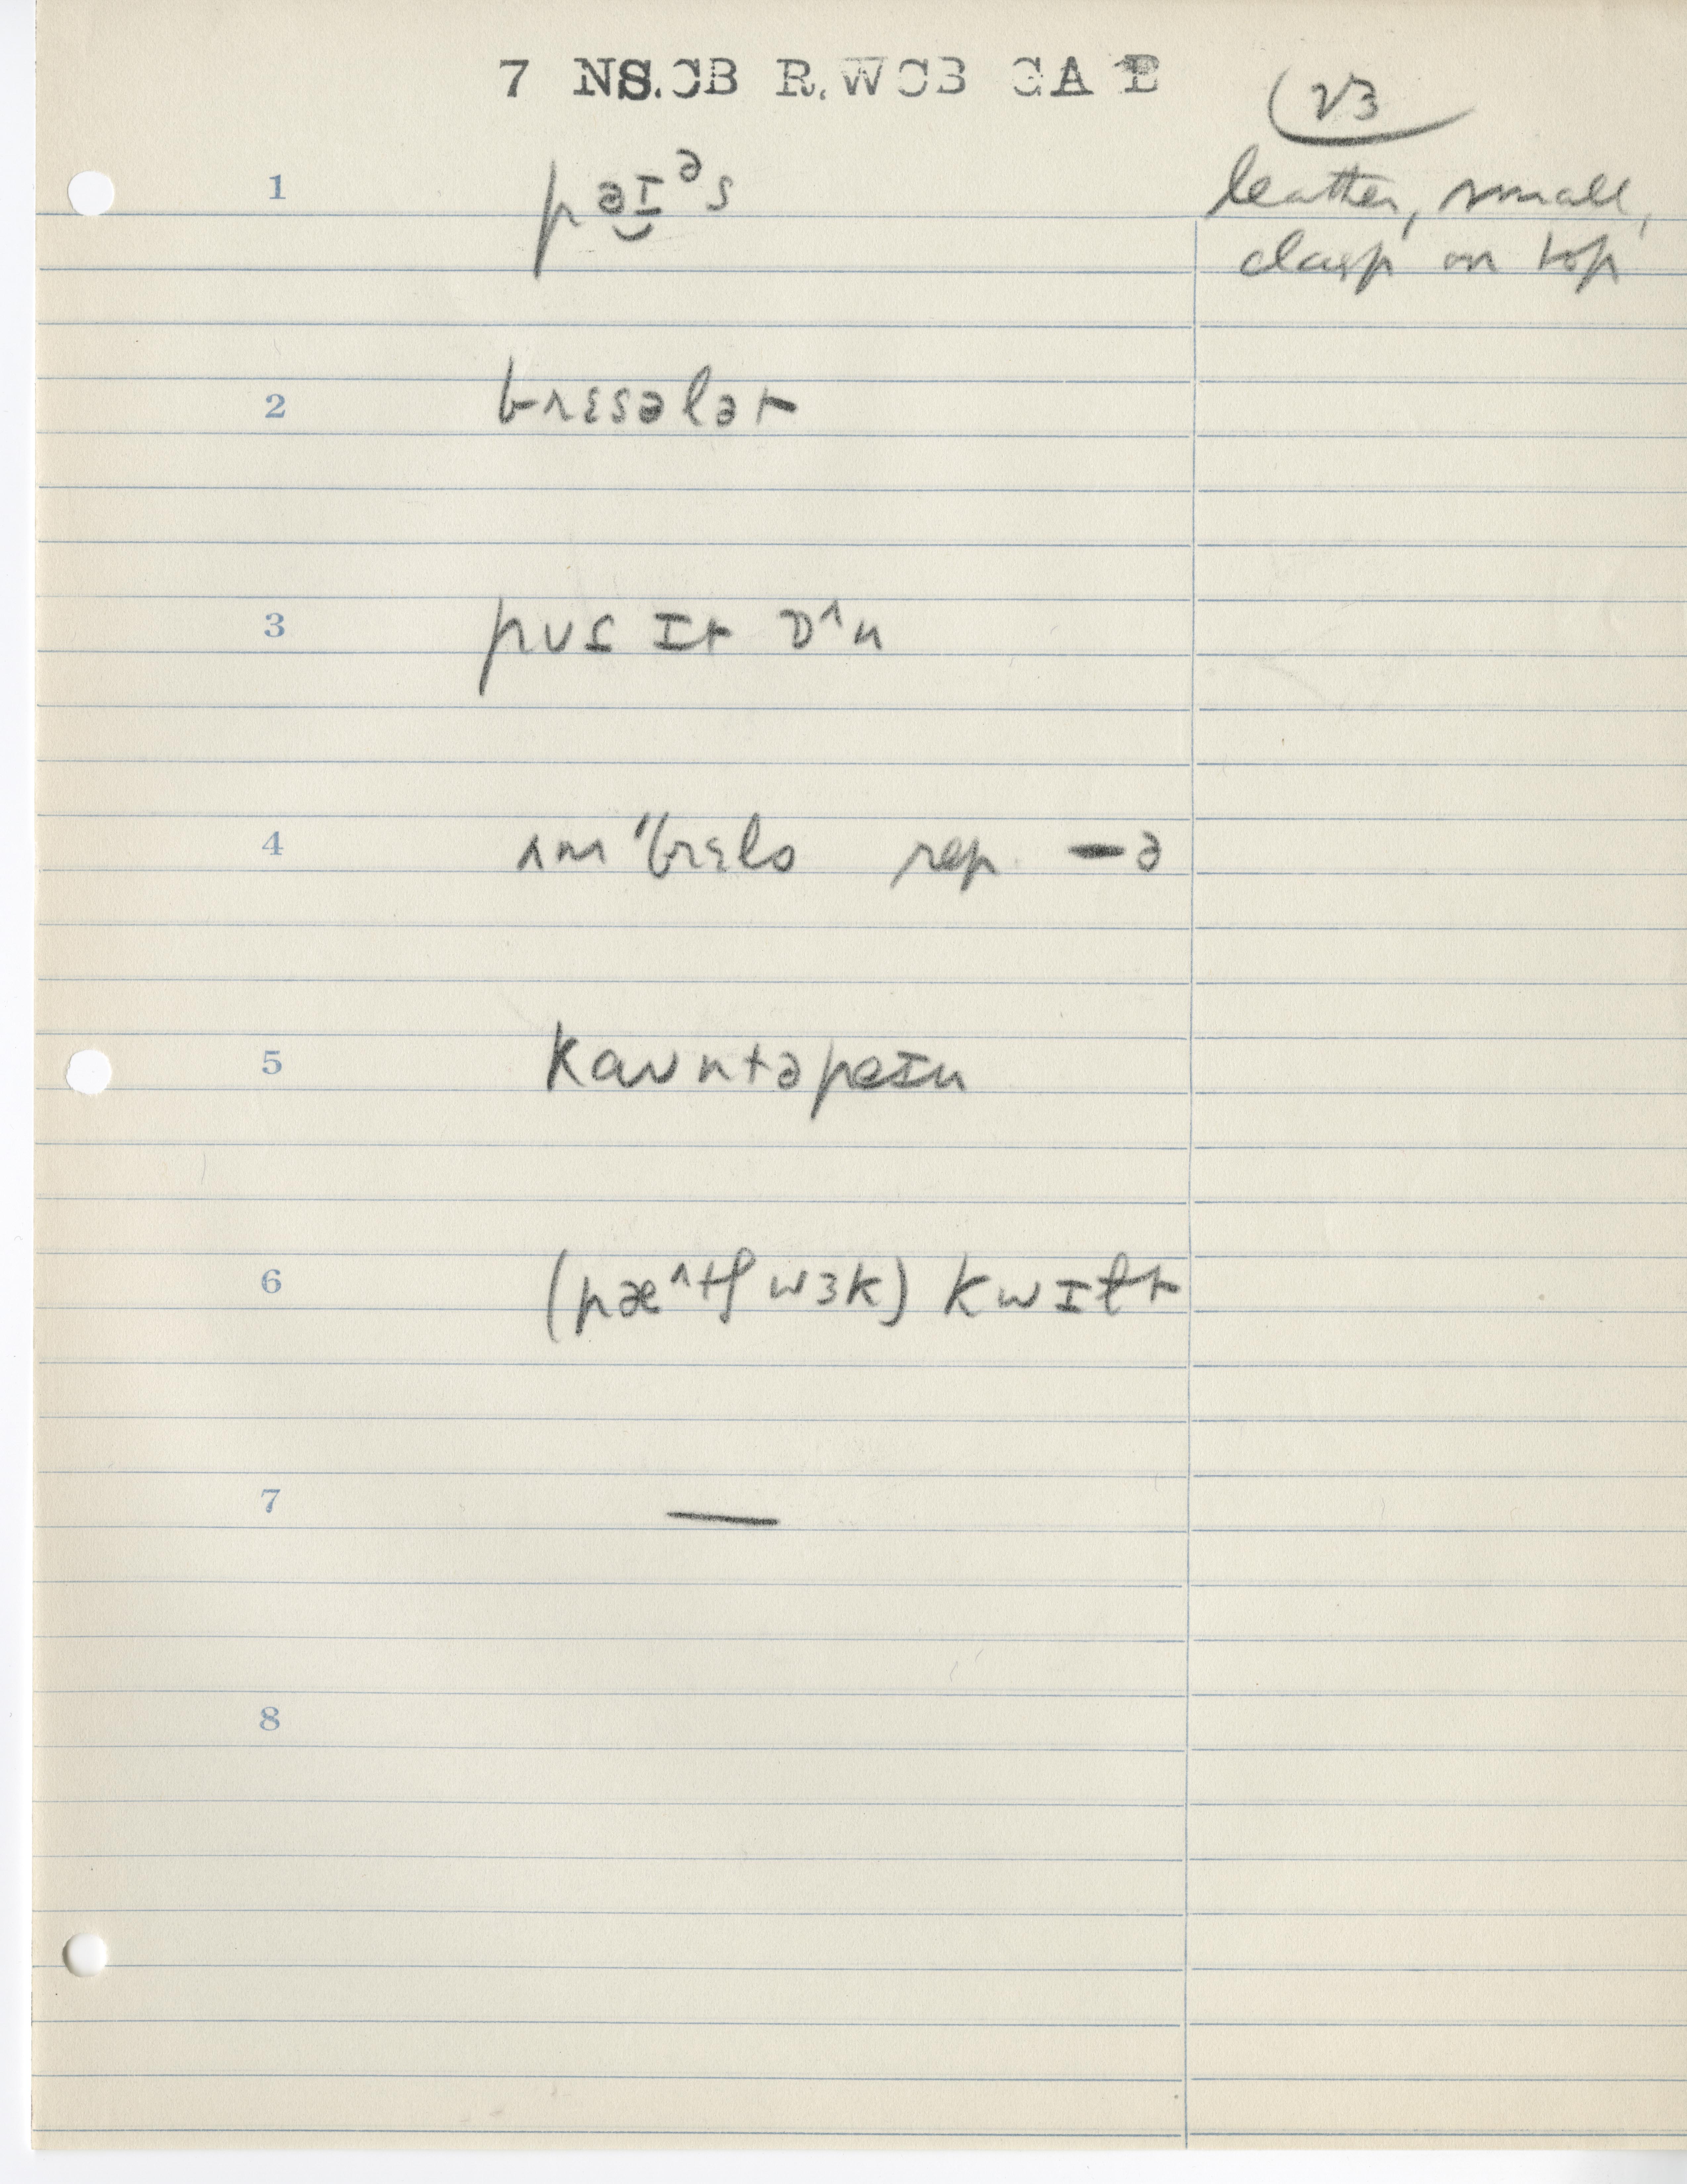 7 NS.CB R.WCB GA B
23
1 pəɪ̯ᵊs
leather, small,
clasp on top
2 brɛsələt
3 pʊs ɪt ɒ^n
4 ʌm"brɛlo rep. -ə
5 kaʊntəpeɪn
6 (pæ^tʃwɜk) kwɪɫt
7 —
8